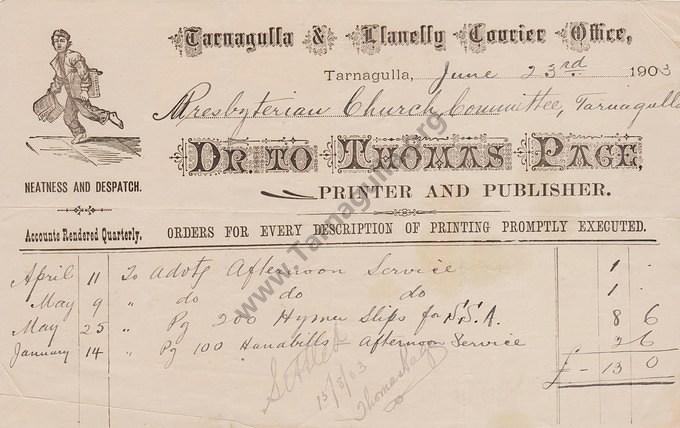 Tarnagulla & Llanelly Courier Office,
Tarnagulla, June 23rd 1903
Presbyterian Church Committee, Tarnagulla
DR. TO THOMAS PAGE,
NEATNESS AND DESPATCH.
PRINTER AND PUBLISHER.
Accounts Rendered Quarterly.
ORDERS FOR EVERY DESCRIPTION OF PRINTING PROMPTLY EXECUTED.
April 11 To advts Afternoon Service 1 -
May 9 " do do do 1 -
May 25 " Pg 200 Hymn Slips for S.S.A. 8 6
January 14 " Pg 100 Handbills Afternoon Service 2 6
£ - 13 0
Settled
15/8/03
Thomas Page
www.Tarnagulla.org